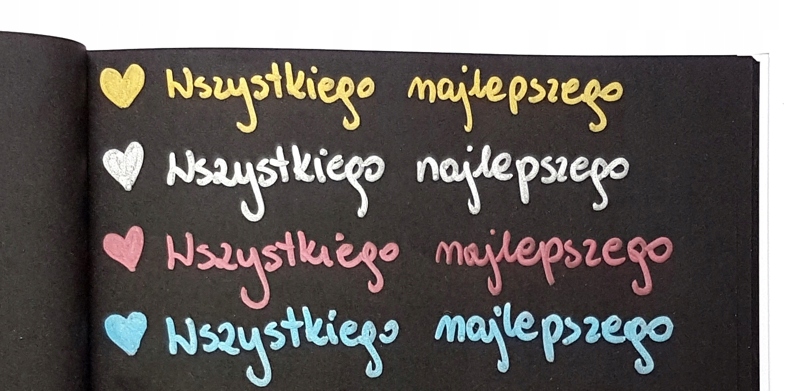 Wszystkiego najlepszego
Wszystkiego najlepszego
Wszystkiego najlepszego
Wszystkiego najlepszego